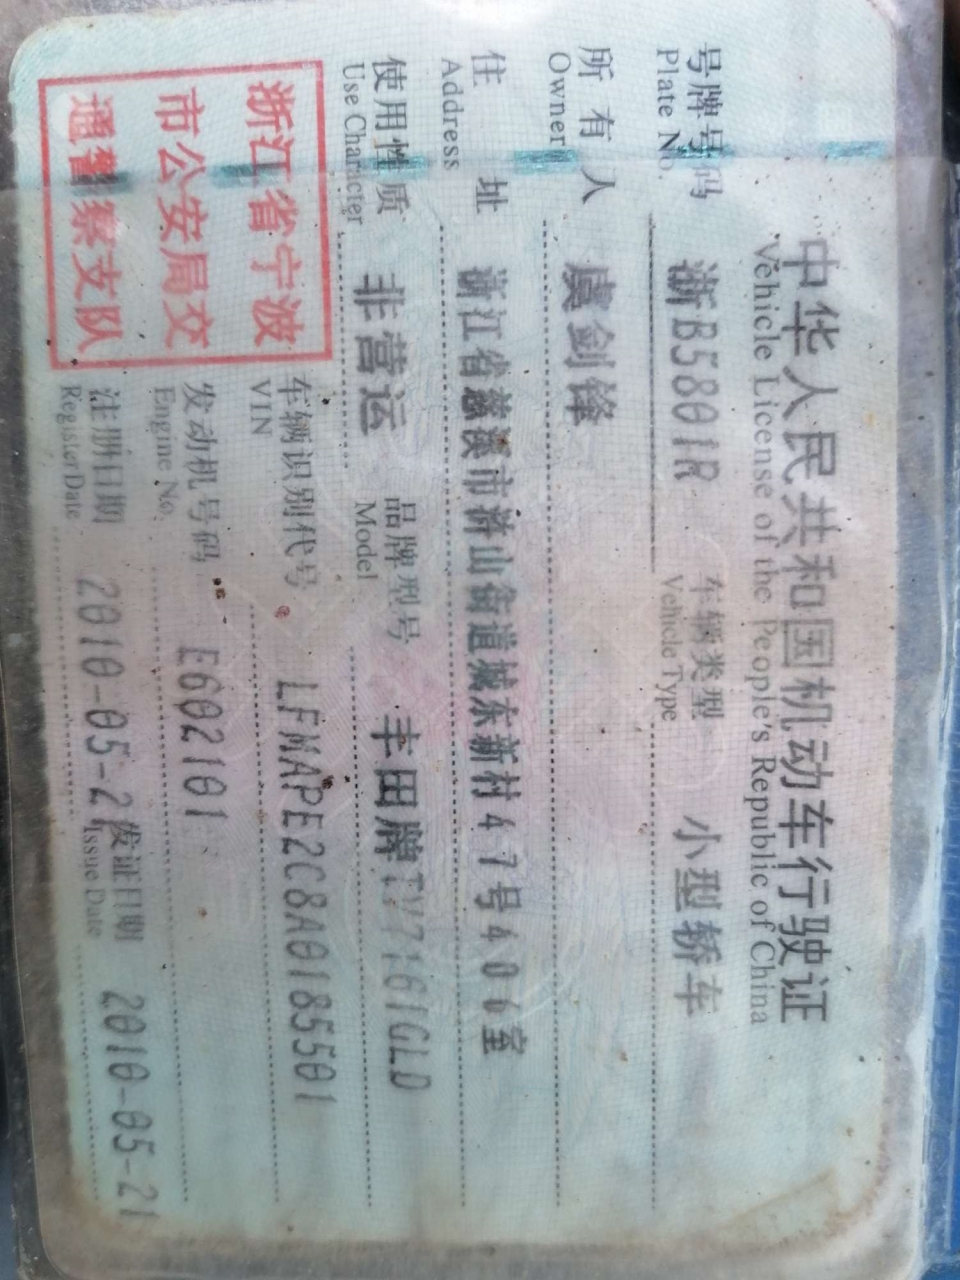 中华人民共和国机动车行驶证
Vehicle License of the People's Republic of China
号牌号码 浙B5801R 车辆类型 小型轿车
Plate No. Vehicle Type
所有人 虞剑锋
Owner
住址 浙江省慈溪市浒山街道城东新村47号406室
Address
使用性质 非营运 品牌型号 丰田牌TV7161GLD
Use Character Model
浙江省宁波
市公安局交
通警察支队
车辆识别代号 LFMAPE2C8A0185501
VIN
发动机号码 E602101
Engine No.
注册日期 2010-05-21 发证日期 2010-05-21
Register Date Issue Date